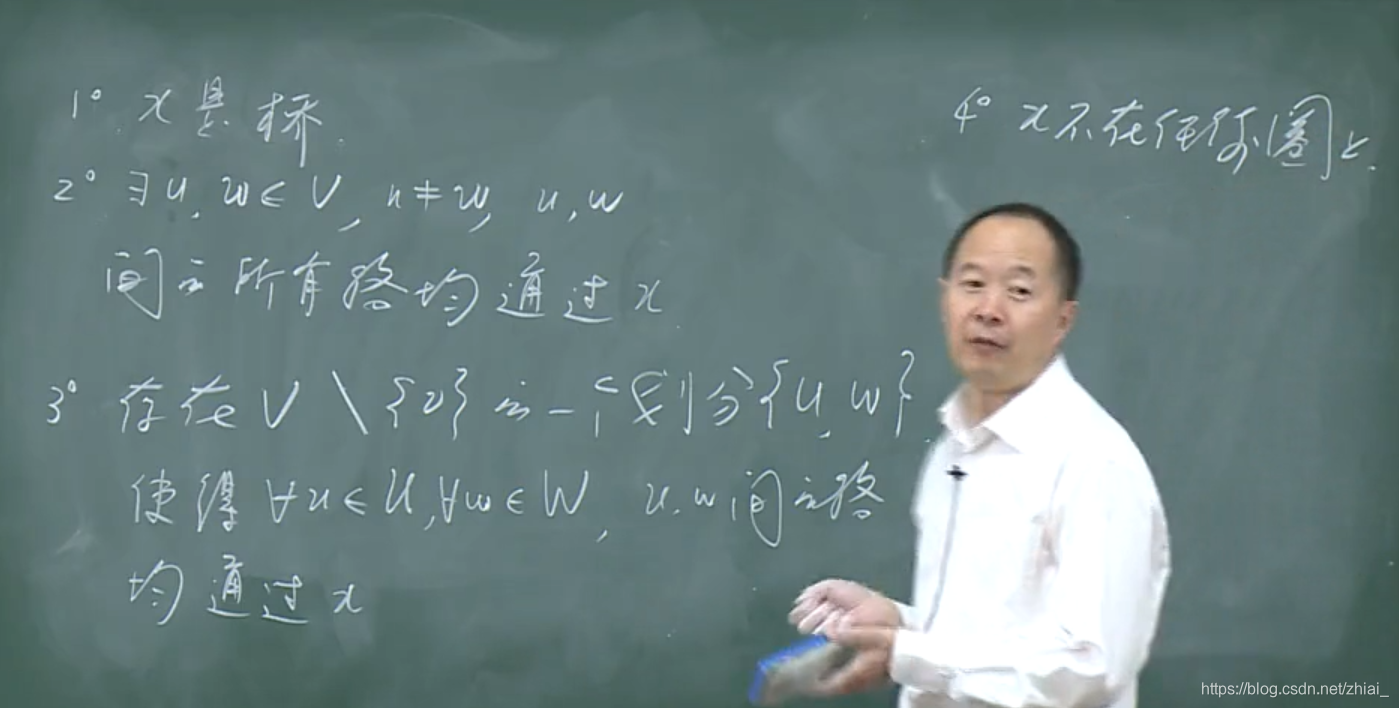 1° x是桥.
2° ∃u, w∈V, u≠w, u, w
间的所有路均通过x.
3° 存在V\{v}的一个划分{U, W},
使得∀u∈U, ∀w∈W, u, w间的路
均通过x
4° x不在任何圈上.
https://blog.csdn.net/zhiai_